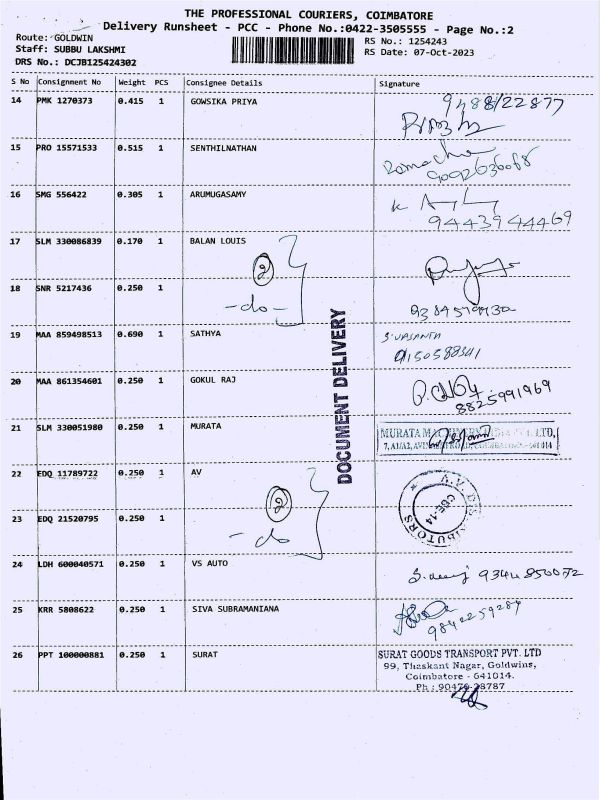 THE PROFESSIONAL COURIERS, COIMBATORE
Delivery Runsheet - PCC - Phone No.:0422-3505555 - Page No.:2
Route: GOLDWIN
Staff: SUBBU LAKSHMI
DRS No.: DCJB125424302
RS No.: 1254243
RS Date: 07-Oct-2023
S No Consignment No Weight PCS Consignee Details Signature
14 PMK 1270373 0.415 1 GOWSIKA PRIYA 9488122877
15 PRO 15571533 0.515 1 SENTHILNATHAN
16 SMG 556422 0.305 1 ARUMUGASAMY
9443944469
17 SLM 330086839 0.170 1 BALAN LOUIS
2
18 SNR 5217436 0.250 1
-do-
19 MAA 859498513 0.690 1 SATHYA S. VASANTA
20 MAA 861354601 0.250 1 GOKUL RAJ
8825991969
DOCUMENT DELIVERY
21 SLM 330051980 0.250 1 MURATA
MURATA MACHINERY LTD,
22 EDQ 11789722 0.250 1 AV
A.V. DISTRIBUTORS
CBE-14
2
23 EDQ 21520795 0.250 1
-do-
24 LDH 600040571 0.250 1 VS AUTO
25 KRR 5808622 0.250 1 SIVA SUBRAMANIANA
9842259287
26 PPT 100000881 0.250 1 SURAT
SURAT GOODS TRANSPORT PVT. LTD
99, Thaskant Nagar, Goldwins,
Coimbatore - 641014.
Ph : 90479-28787